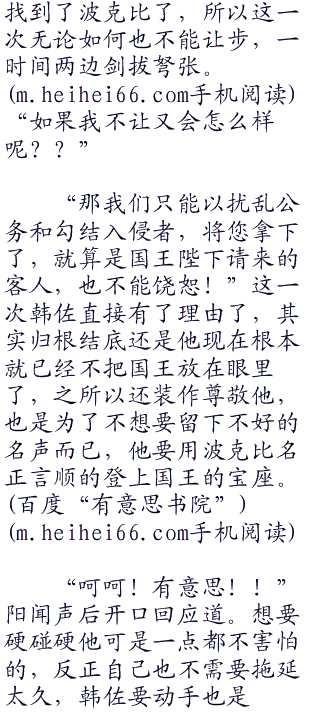 找到了波克比了，所以这一
次无论如何也不能让步，一
时间两边剑拔弩张。
(m.heihei66.com手机阅读)
“如果我不让又会怎么样
呢？？”
“那我们只能以扰乱公
务和勾结入侵者，将您拿下
了，就算是国王陛下请来的
客人，也不能饶恕！”这一
次韩佐直接有了理由了，其
实归根结底还是他现在根本
就已经不把国王放在眼里
了，之所以还装作尊敬他，
也是为了不想要留下不好的
名声而已，他要用波克比名
正言顺的登上国王的宝座。
(百度“有意思书院”)
(m.heihei66.com手机阅读)
“呵呵！有意思！！”
阳闻声后开口回应道。想要
硬碰硬他可是一点都不害怕
的，反正自己也不需要拖延
太久，韩佐要动手也是